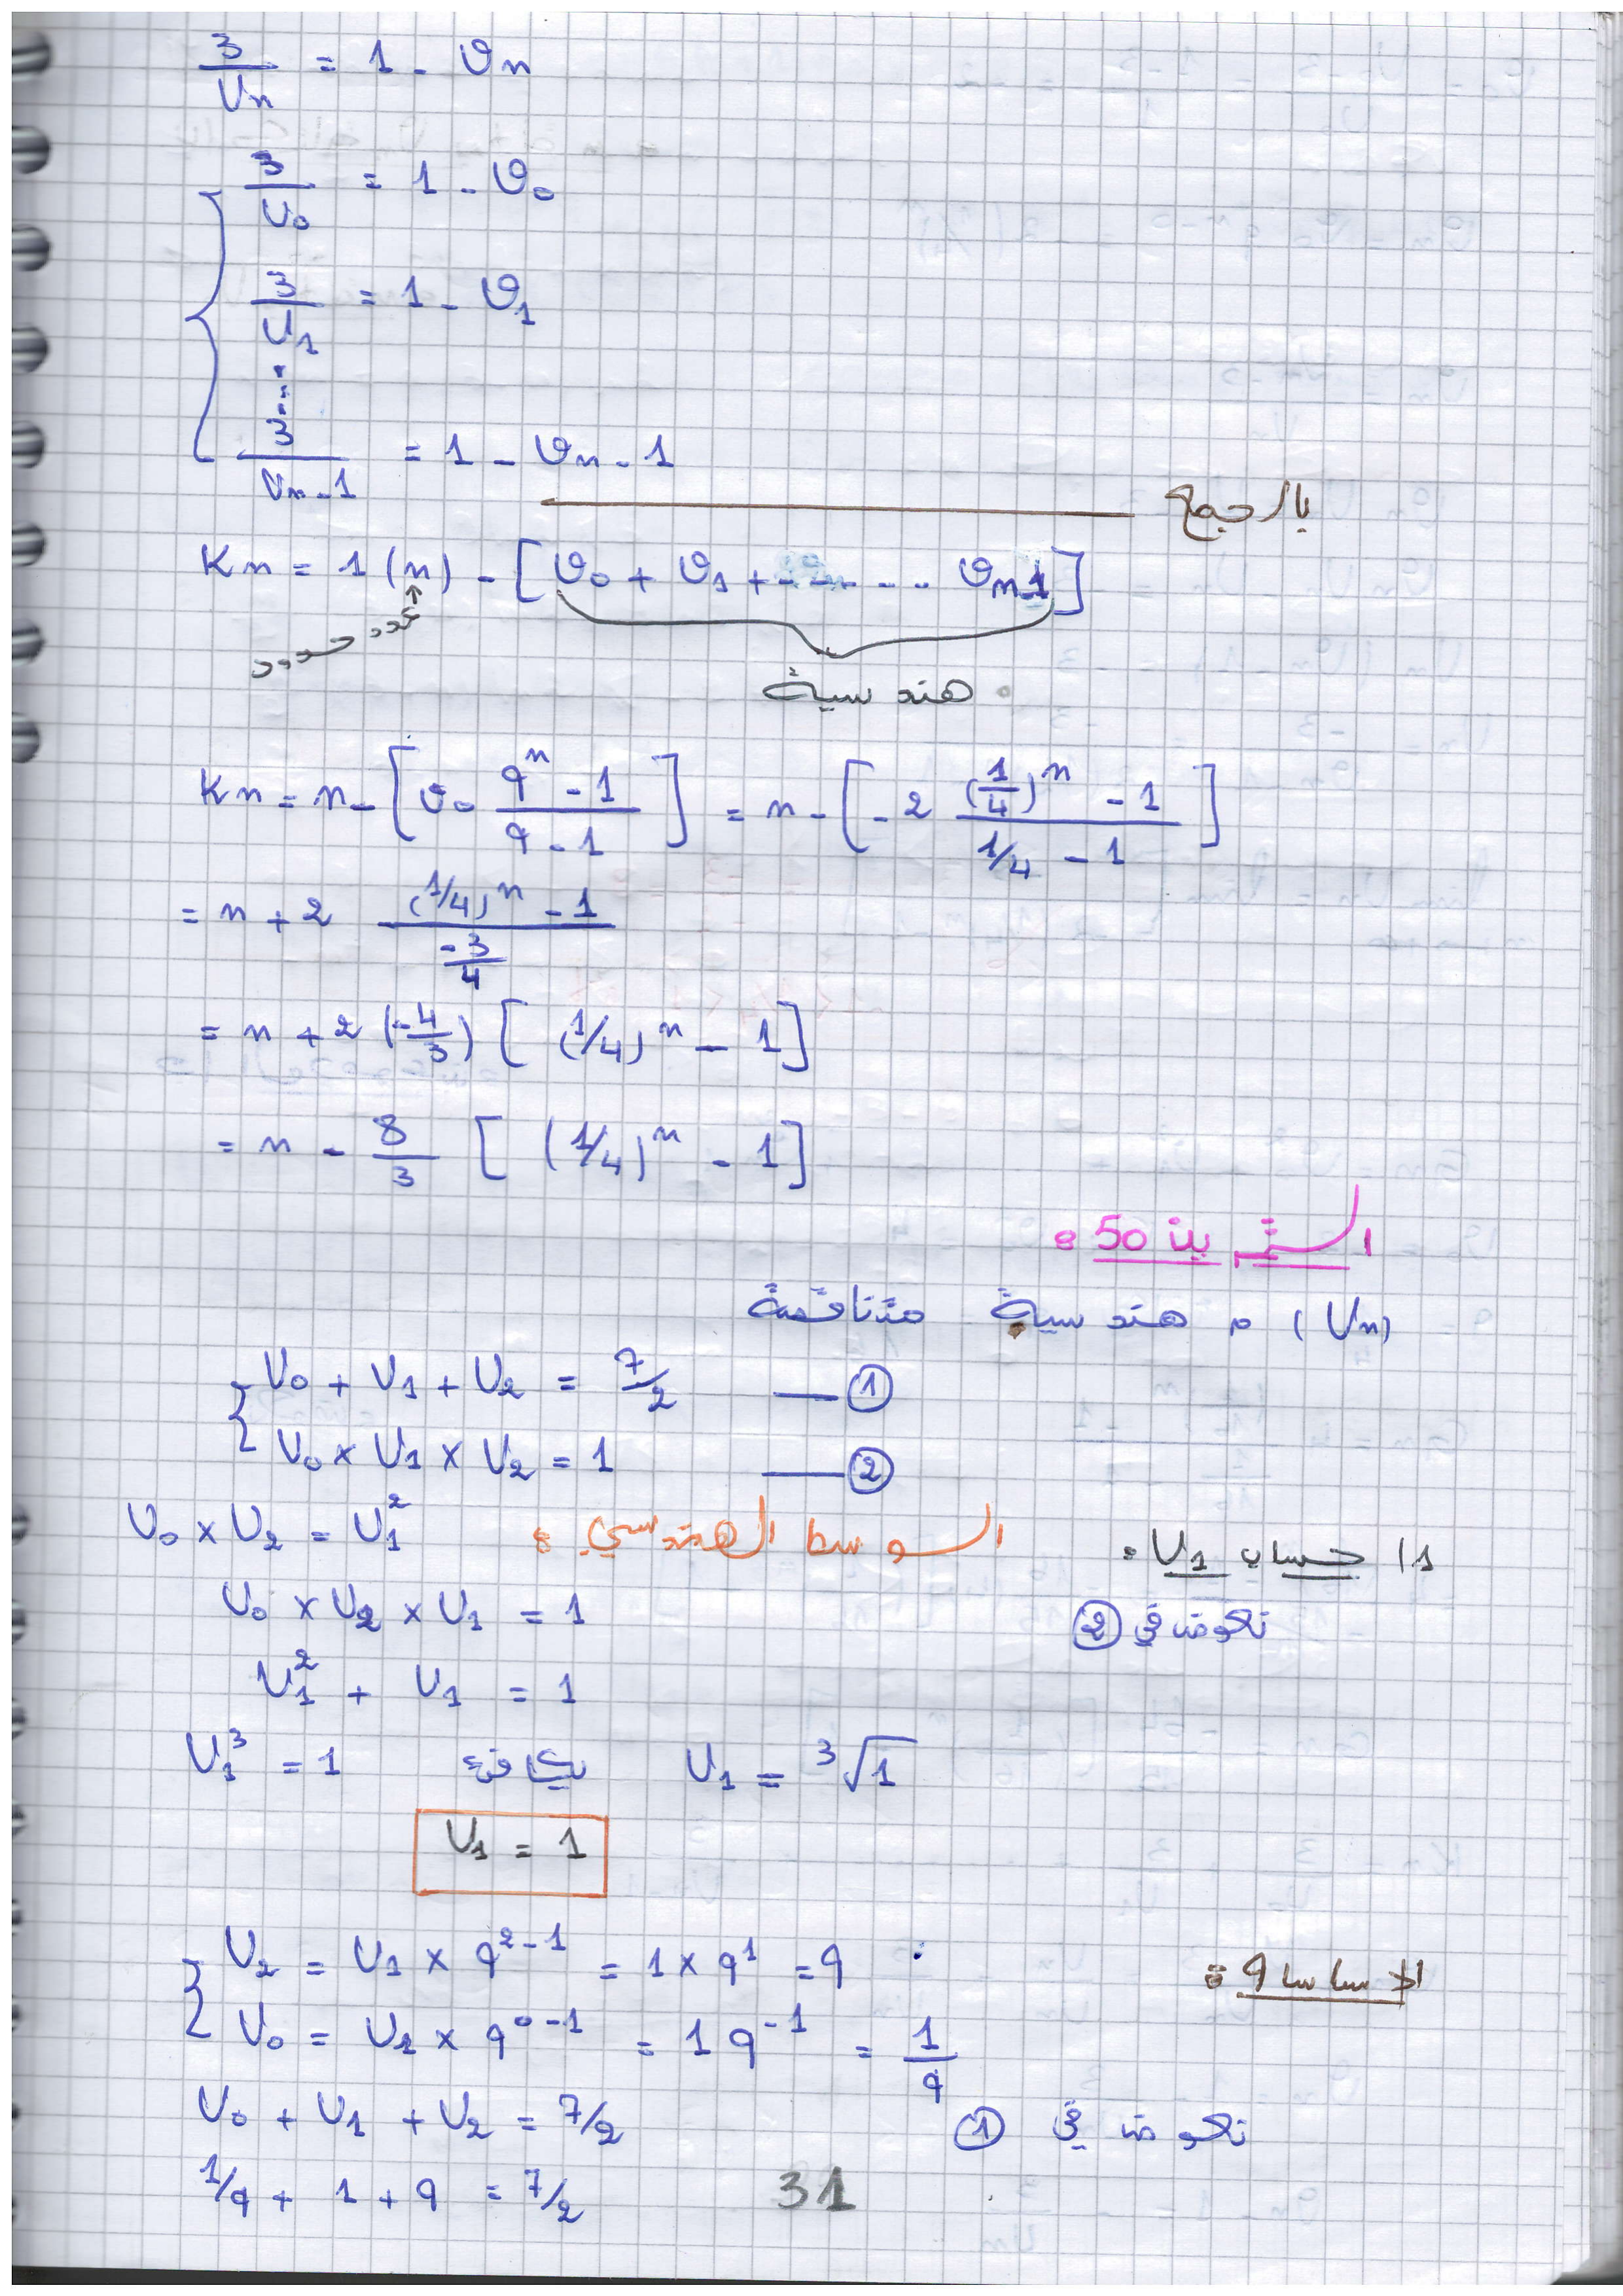 3/Un = 1 - ϑn
3/U0 = 1 - ϑ0
3/U1 = 1 - ϑ1
3/Un-1 = 1 - ϑn-1
بالجمع
Kn = 1 (n) - [ϑ0 + ϑ1 + ------ ϑn-1]
عدد حدود
هندسية
Kn = n - [ϑ0 (q^n - 1)/(q - 1)] = n - [-2 ((1/4)^n - 1)/(1/4 - 1)]
= n + 2 ((1/4)^n - 1)/(-3/4)
= n + 2 (-4/3) [(1/4)^n - 1]
= n - 8/3 [(1/4)^n - 1]
التمرين 50:
(Un) م هندسية متناقصة
U0 + U1 + U2 = 7/2 — ①
U0 × U1 × U2 = 1 — ②
1) حساب U1:
الوسط الهندسي: U0 × U2 = U1²
نعوض في ②
U0 × U2 × U1 = 1
U1² + U1 = 1
U1³ = 1 يكافئ U1 = ³√1
U1 = 1
الاساسا q:
U2 = U1 × q^2-1 = 1 × q^1 = q
U0 = U1 × q^0-1 = 1 q^-1 = 1/q
نعوض في ①
U0 + U1 + U2 = 7/2
1/q + 1 + q = 7/2
31